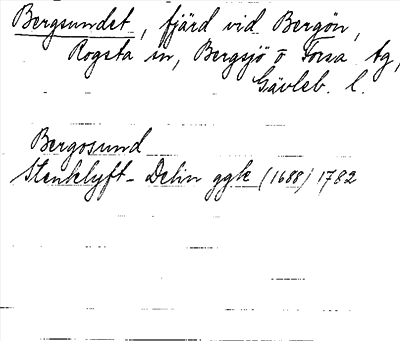 Bergsundet, fjärd vid Bergön,
Rogsta sn, Bergsjö o Forsa tg,
Gävleb. l.
Bergosund
Stenklyft-Delin ggk (1688) 1782